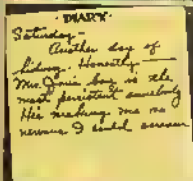 DIARY
Saturday -
Another day of
hiding. Honestly -
Mr. Jones' boy is the
most persistent somebody
He's making me so
nervous I could scream